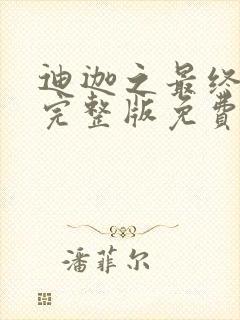 迪迦之最终
完整版免费
潘菲尔